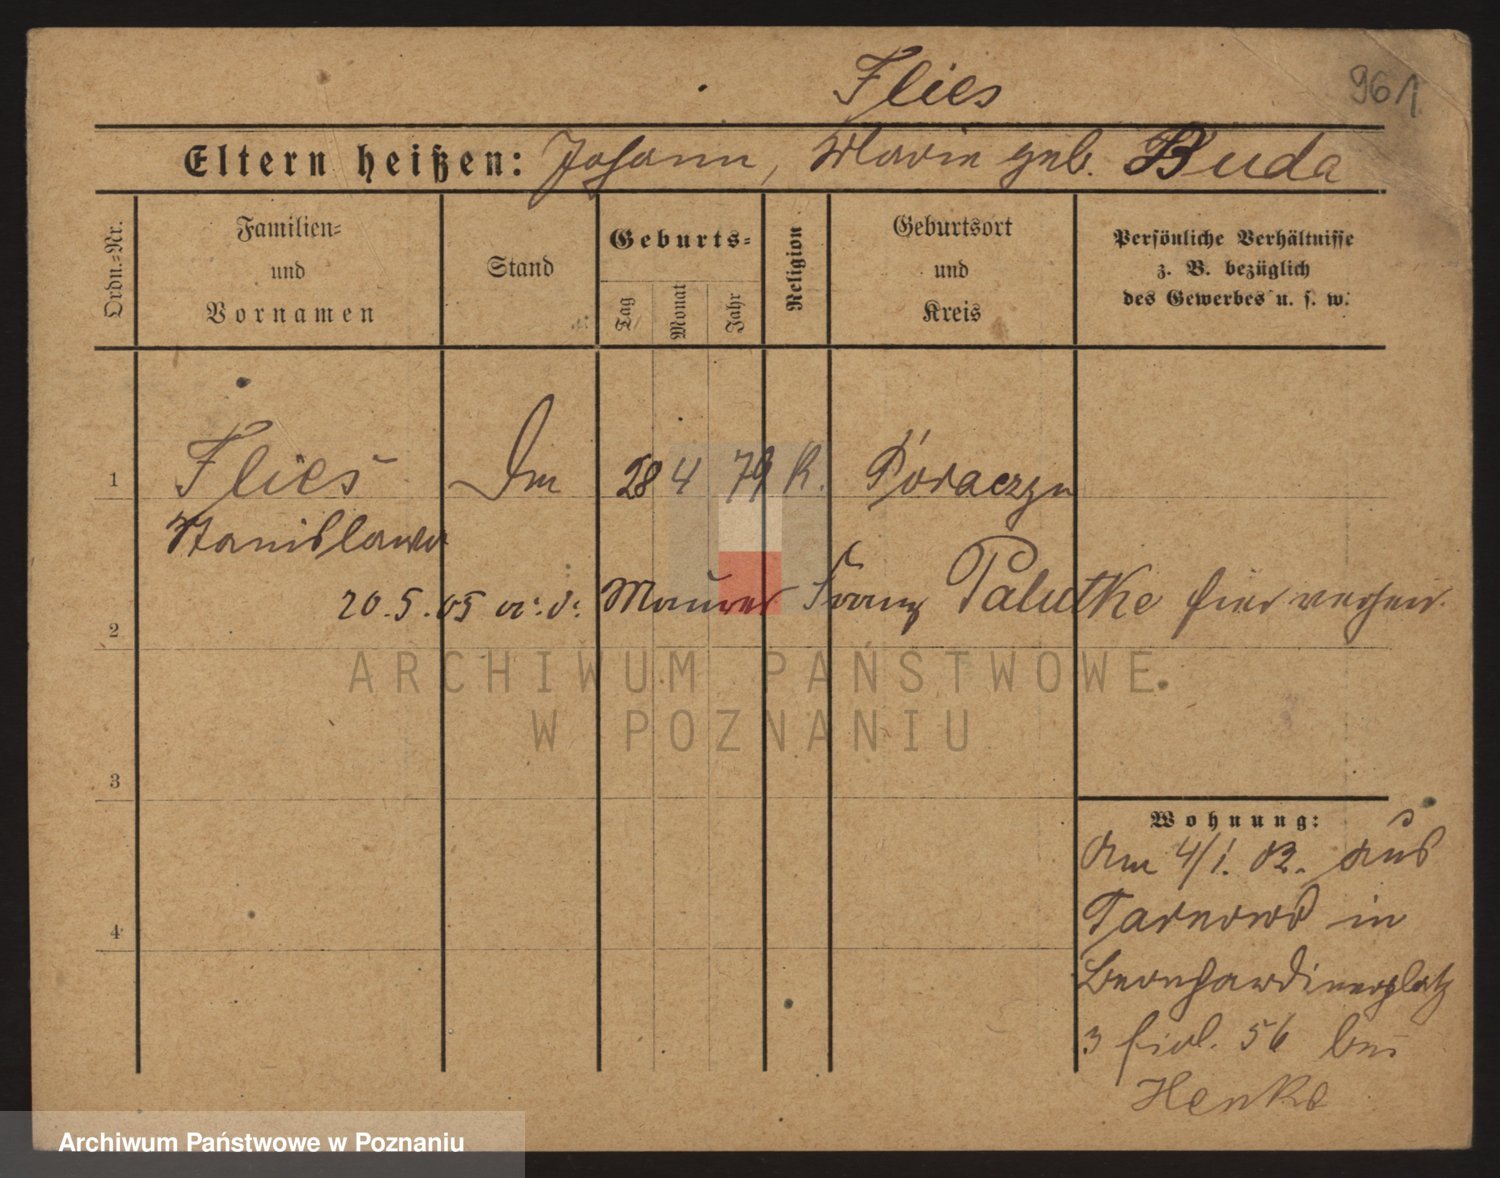 Flies
961
Eltern heißen: Johann, Marie geb. Buda
Ordn.-Nr.
Familien-
und
Vornamen
Stand
Geburts-
Tag
Monat
Jahr
Religion
Geburtsort
und
Kreis
Persönliche Verhältnisse
z. B. bezüglich
des Gewerbes u. s. w.
1 Flies 28 4 79 K.
Stanislawa
20.5.05 Maurer Franz Palutke hier
2
ARCHIWUM PAŃSTWOWE
W POZNANIU
3
Wohnung:
Am 4/1. 02. aus
Tarnowo in
4
Bernhardinerplatz
3 bei
Henke
Archiwum Państwowe w Poznaniu